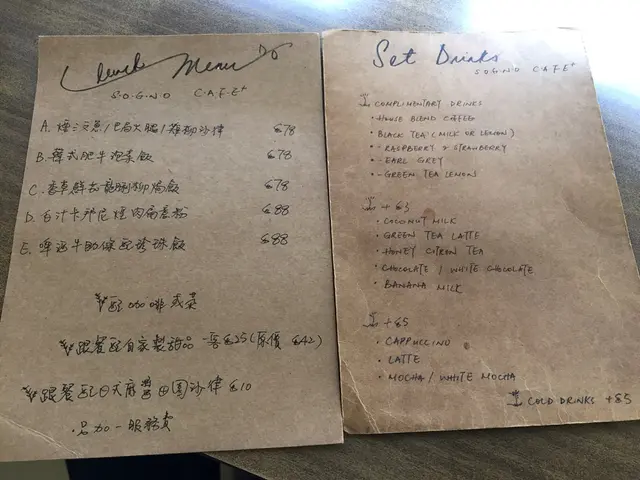 Lunch Menu
S.O.G.N.O C.A.F.E+
A. 煙三文魚/巴馬火腿/雜菌沙律 $78
B. 韓式肥牛泡菜飯 $78
C. 香草鮮茄龍脷柳焗飯 $78
D. 白汁卡邦尼煙肉扁意粉 $88
E. 啤酒牛肋條配珍珠飯 $88
配咖啡或茶
跟餐配自家製甜品一客$25(原價 $42)
跟餐配日式麻醬田園沙律 $10
另加一服務費
Set Drinks
S.O.G.N.O C.A.F.E+
COMPLIMENTARY DRINKS
• HOUSE BLEND COFFEE
• BLACK TEA (MILK OR LEMON)
• - RASPBERRY & STRAWBERRY
• - EARL GREY
• - GREEN TEA LEMON
+$3
• COCONUT MILK
• GREEN TEA LATTE
• HONEY CITRON TEA
• CHOCOLATE / WHITE CHOCOLATE
• BANANA MILK
+$5
• CAPPUCCINO
• LATTE
• MOCHA / WHITE MOCHA
COLD DRINKS +$5